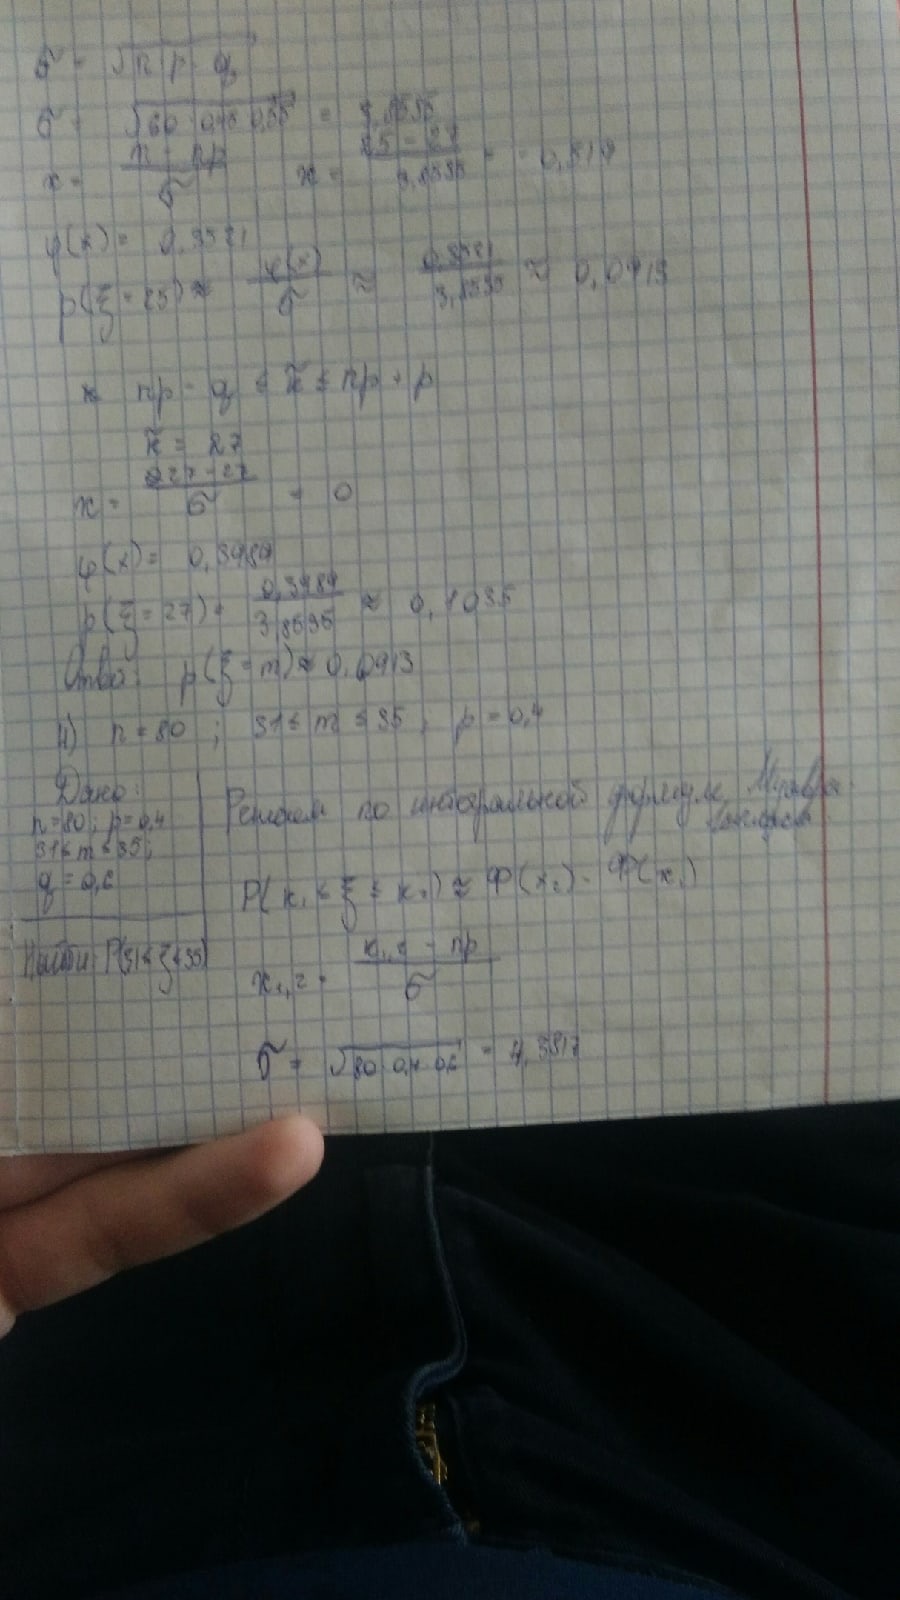 σ = √(n p q)
σ = √(60 · 0,45 · 0,55) = 3,8535
x = (m - np)/σ x = (25 - 27)/3,8535 = - 0,519
φ(x) = 0,3521
p(ξ = 25) ≈ φ(x)/σ ≈ 0,3521/3,8535 ≈ 0,0913
np - q ≤ k̃ ≤ np + p
k̃ = 27
x = (27 - 27)/σ = 0
φ(x) = 0,3989
p(ξ = 27) = 0,3989/3,8535 ≈ 0,1035
Ответ: p(ξ = m) ≈ 0,0913
4) n = 80 ; 31 ≤ m ≤ 35 ; p = 0,4
Дано:
n = 80; p = 0,4
31 ≤ m ≤ 35;
q = 0,6
Найти: P(31 < ξ < 35)
Решаем по интегральной формуле Муавра-
Лапласа
P(k₁ ≤ ξ ≤ k₂) ≈ Ф(x₂) - Ф(x₁)
x₁,₂ = (k₁,₂ - np)/σ
σ = √(80 · 0,4 · 0,6) = 4,3817